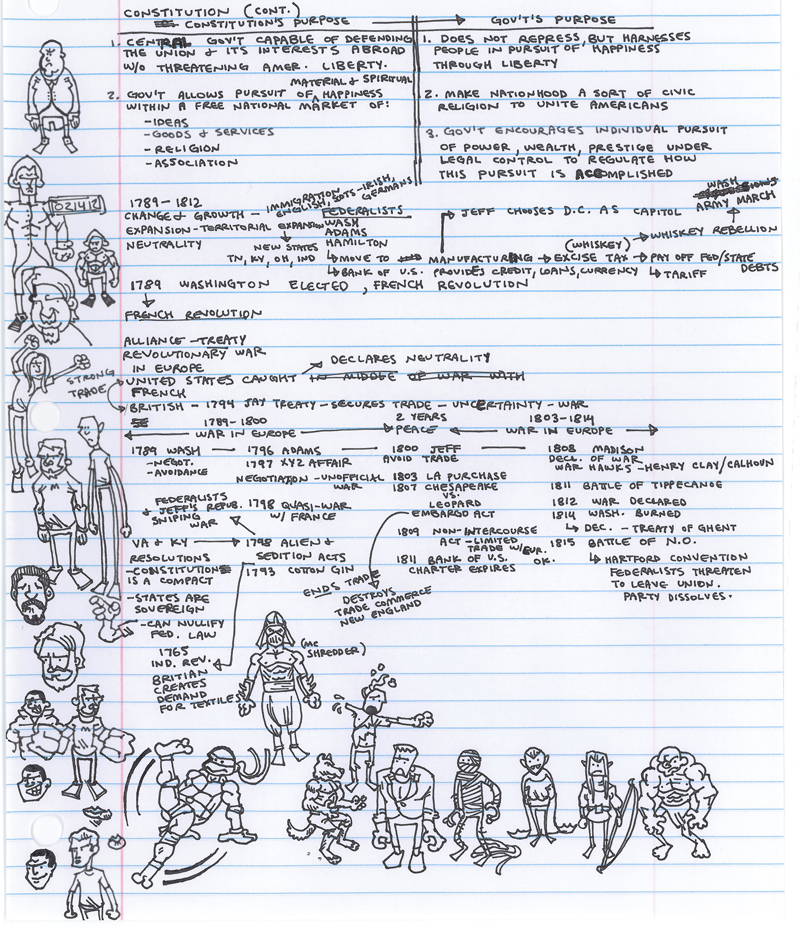 CONSTITUTION (CONT.)
CONSTITUTION'S PURPOSE
GOV'T'S PURPOSE
1. CENTRAL GOV'T CAPABLE OF DEFENDING
THE UNION & ITS INTERESTS ABROAD
W/O THREATENING AMER. LIBERTY.
MATERIAL & SPIRITUAL
2. GOV'T ALLOWS PURSUIT OF HAPPINESS
WITHIN A FREE NATIONAL MARKET OF:
-IDEAS
-GOODS & SERVICES
-RELIGION
-ASSOCIATION
1. DOES NOT REPRESS, BUT HARNESSES
PEOPLE IN PURSUIT OF HAPPINESS
THROUGH LIBERTY
2. MAKE NATIONHOOD A SORT OF CIVIC
RELIGION TO UNITE AMERICANS
3. GOV'T ENCOURAGES INDIVIDUAL PURSUIT
OF POWER, WEALTH, PRESTIGE UNDER
LEGAL CONTROL TO REGULATE HOW
THIS PURSUIT IS ACCOMPLISHED
021412
1789-1812
CHANGE & GROWTH - IMMIGRATION
ENGLISH, SCOTS-IRISH,
GERMANS
EXPANSION-TERRITORIAL EXPANSION
NEUTRALITY
NEW STATES
TN, KY, OH, IND
FEDERALISTS
WASH
ADAMS
HAMILTON
MOVE TO MANUFACTURING
EXCISE TAX
(WHISKEY)
PAY OFF FED/STATE
DEBTS
BANK OF U.S. PROVIDES CREDIT, LOANS, CURRENCY
TARIFF
JEFF CHOOSES D.C. AS CAPITOL
WHISKEY REBELLION
WASH
ARMY MARCH
1789 WASHINGTON ELECTED, FRENCH REVOLUTION
FRENCH REVOLUTION
ALLIANCE-TREATY
REVOLUTIONARY WAR
IN EUROPE
DECLARES NEUTRALITY
STRONG
TRADE
UNITED STATES CAUGHT IN MIDDLE OF WAR WITH
FRENCH
BRITISH - 1794 JAY TREATY - SECURES TRADE - UNCERTAINTY - WAR
1789-1800
2 YEARS
1803-1814
WAR IN EUROPE
PEACE
WAR IN EUROPE
1789 WASH
-NEGOT.
-AVOIDANCE
1796 ADAMS
1797 XYZ AFFAIR
NEGOTIATION - UNOFFICIAL
WAR
1798 QUASI-WAR
W/ FRANCE
FEDERALISTS
& JEFF'S REPUB.
SNIPING
WAR
VA & KY
RESOLUTIONS
-CONSTITUTION
IS A COMPACT
-STATES ARE
SOVEREIGN
-CAN NULLIFY
FED. LAW
1798 ALIEN &
SEDITION ACTS
1793 COTTON GIN
1765
IND. REV.
BRITIAN
CREATES
DEMAND
FOR TEXTILES
1800 JEFF
AVOID TRADE
1803 LA PURCHASE
1807 CHESAPEAKE
VS.
LEOPARD
EMBARGO ACT
1809 NON-INTERCOURSE
ACT-LIMITED
TRADE W/EUR.
OK.
1811 BANK OF U.S.
CHARTER EXPIRES
ENDS TRADE
DESTROYS
TRADE COMMERCE
NEW ENGLAND
1808 MADISON
DECL. OF WAR
WAR HAWKS - HENRY CLAY/CALHOUN
1811 BATTLE OF TIPPECANOE
1812 WAR DECLARED
1814 WASH. BURNED
DEC. - TREATY OF GHENT
1815 BATTLE OF N.O.
HARTFORD CONVENTION
FEDERALISTS THREATEN
TO LEAVE UNION.
PARTY DISSOLVES.
(MC
SHREDDER)
M
M